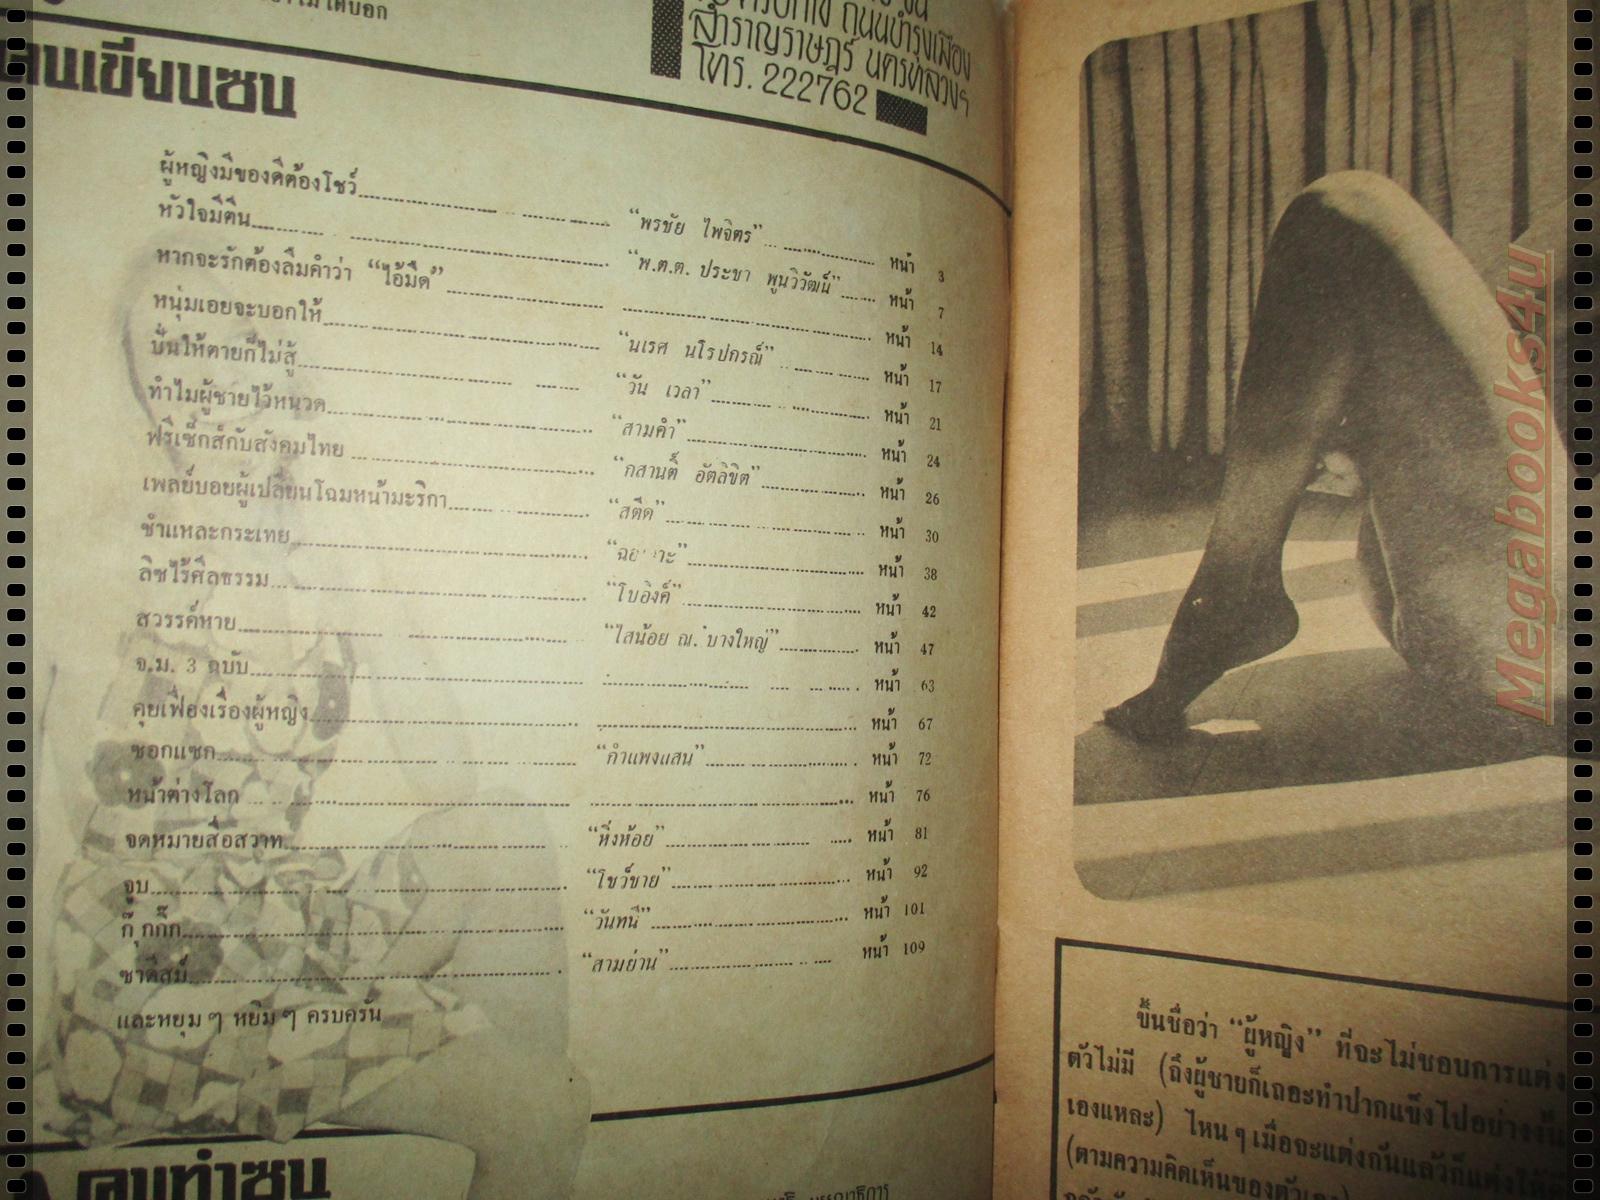 ไม่ได้บอก
ถนนบำรุงเมือง
สำราญราษฎร์ นครหลวงฯ
โทร. 222762
คนเขียนซน
ผู้หญิงมีของดีต้องโชว์ “พรชัย ไพจิตร” หน้า 3
หัวใจมีตีน “พ.ต.ต. ประชา พูนวิวัฒน์” หน้า 7
หากจะรักต้องลืมคำว่า “ไอ้มืด” หน้า 14
หนุ่มเอยจะบอกให้ “นเรศ นโรปกรณ์” หน้า 17
ปั้นให้ตายก็ไม่สู้ “วัน เวลา” หน้า 21
ทำไมผู้ชายไว้หนวด “สามคำ” หน้า 24
ฟรีเซ็กส์กับสังคมไทย “กสานติ์ อัตลิขิต” หน้า 26
เพลย์บอยผู้เปลี่ยนโฉมหน้ามะริกา “สตีด” หน้า 30
ชำแหละกระเทย หน้า 38
ลิซไร้ศีลธรรม “โบอิ้งค์” หน้า 42
สวรรค์หาย “ไสน้อย ณ. บางใหญ่” หน้า 47
จ.ม. 3 ฉบับ หน้า 63
คุยเฟื่องเรื่องผู้หญิง หน้า 67
ซอกแซก “กำแพงแสน” หน้า 72
หน้าต่างโลก หน้า 76
จดหมายสื่อสวาท “หิ่งห้อย” หน้า 81
จูบ “โชว์ชาย” หน้า 92
กุ๊กกิ๊ก “วันทนี” หน้า 101
ซาดิสม์ “สามย่าน” หน้า 109
และหยุม ๆ หยิม ๆ ครบครัน
คนทำซน
บรรณาธิการ
ขึ้นชื่อว่า “ผู้หญิง” ที่จะไม่ชอบการแต่ง
ตัวไม่มี (ถึงผู้ชายก็เถอะทำปากแข็งไปอย่างงั้น
เองแหละ) ไหน ๆ เมื่อจะแต่งกันแล้วก็แต่งให้
(ตามความคิดเห็นของตัวเอง)
Megabooks4u